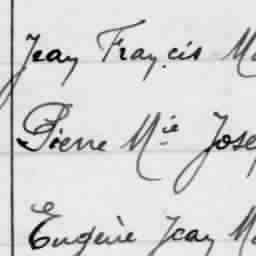 Jean Francis M
Pierre Mie Jose
Eugène Jean M